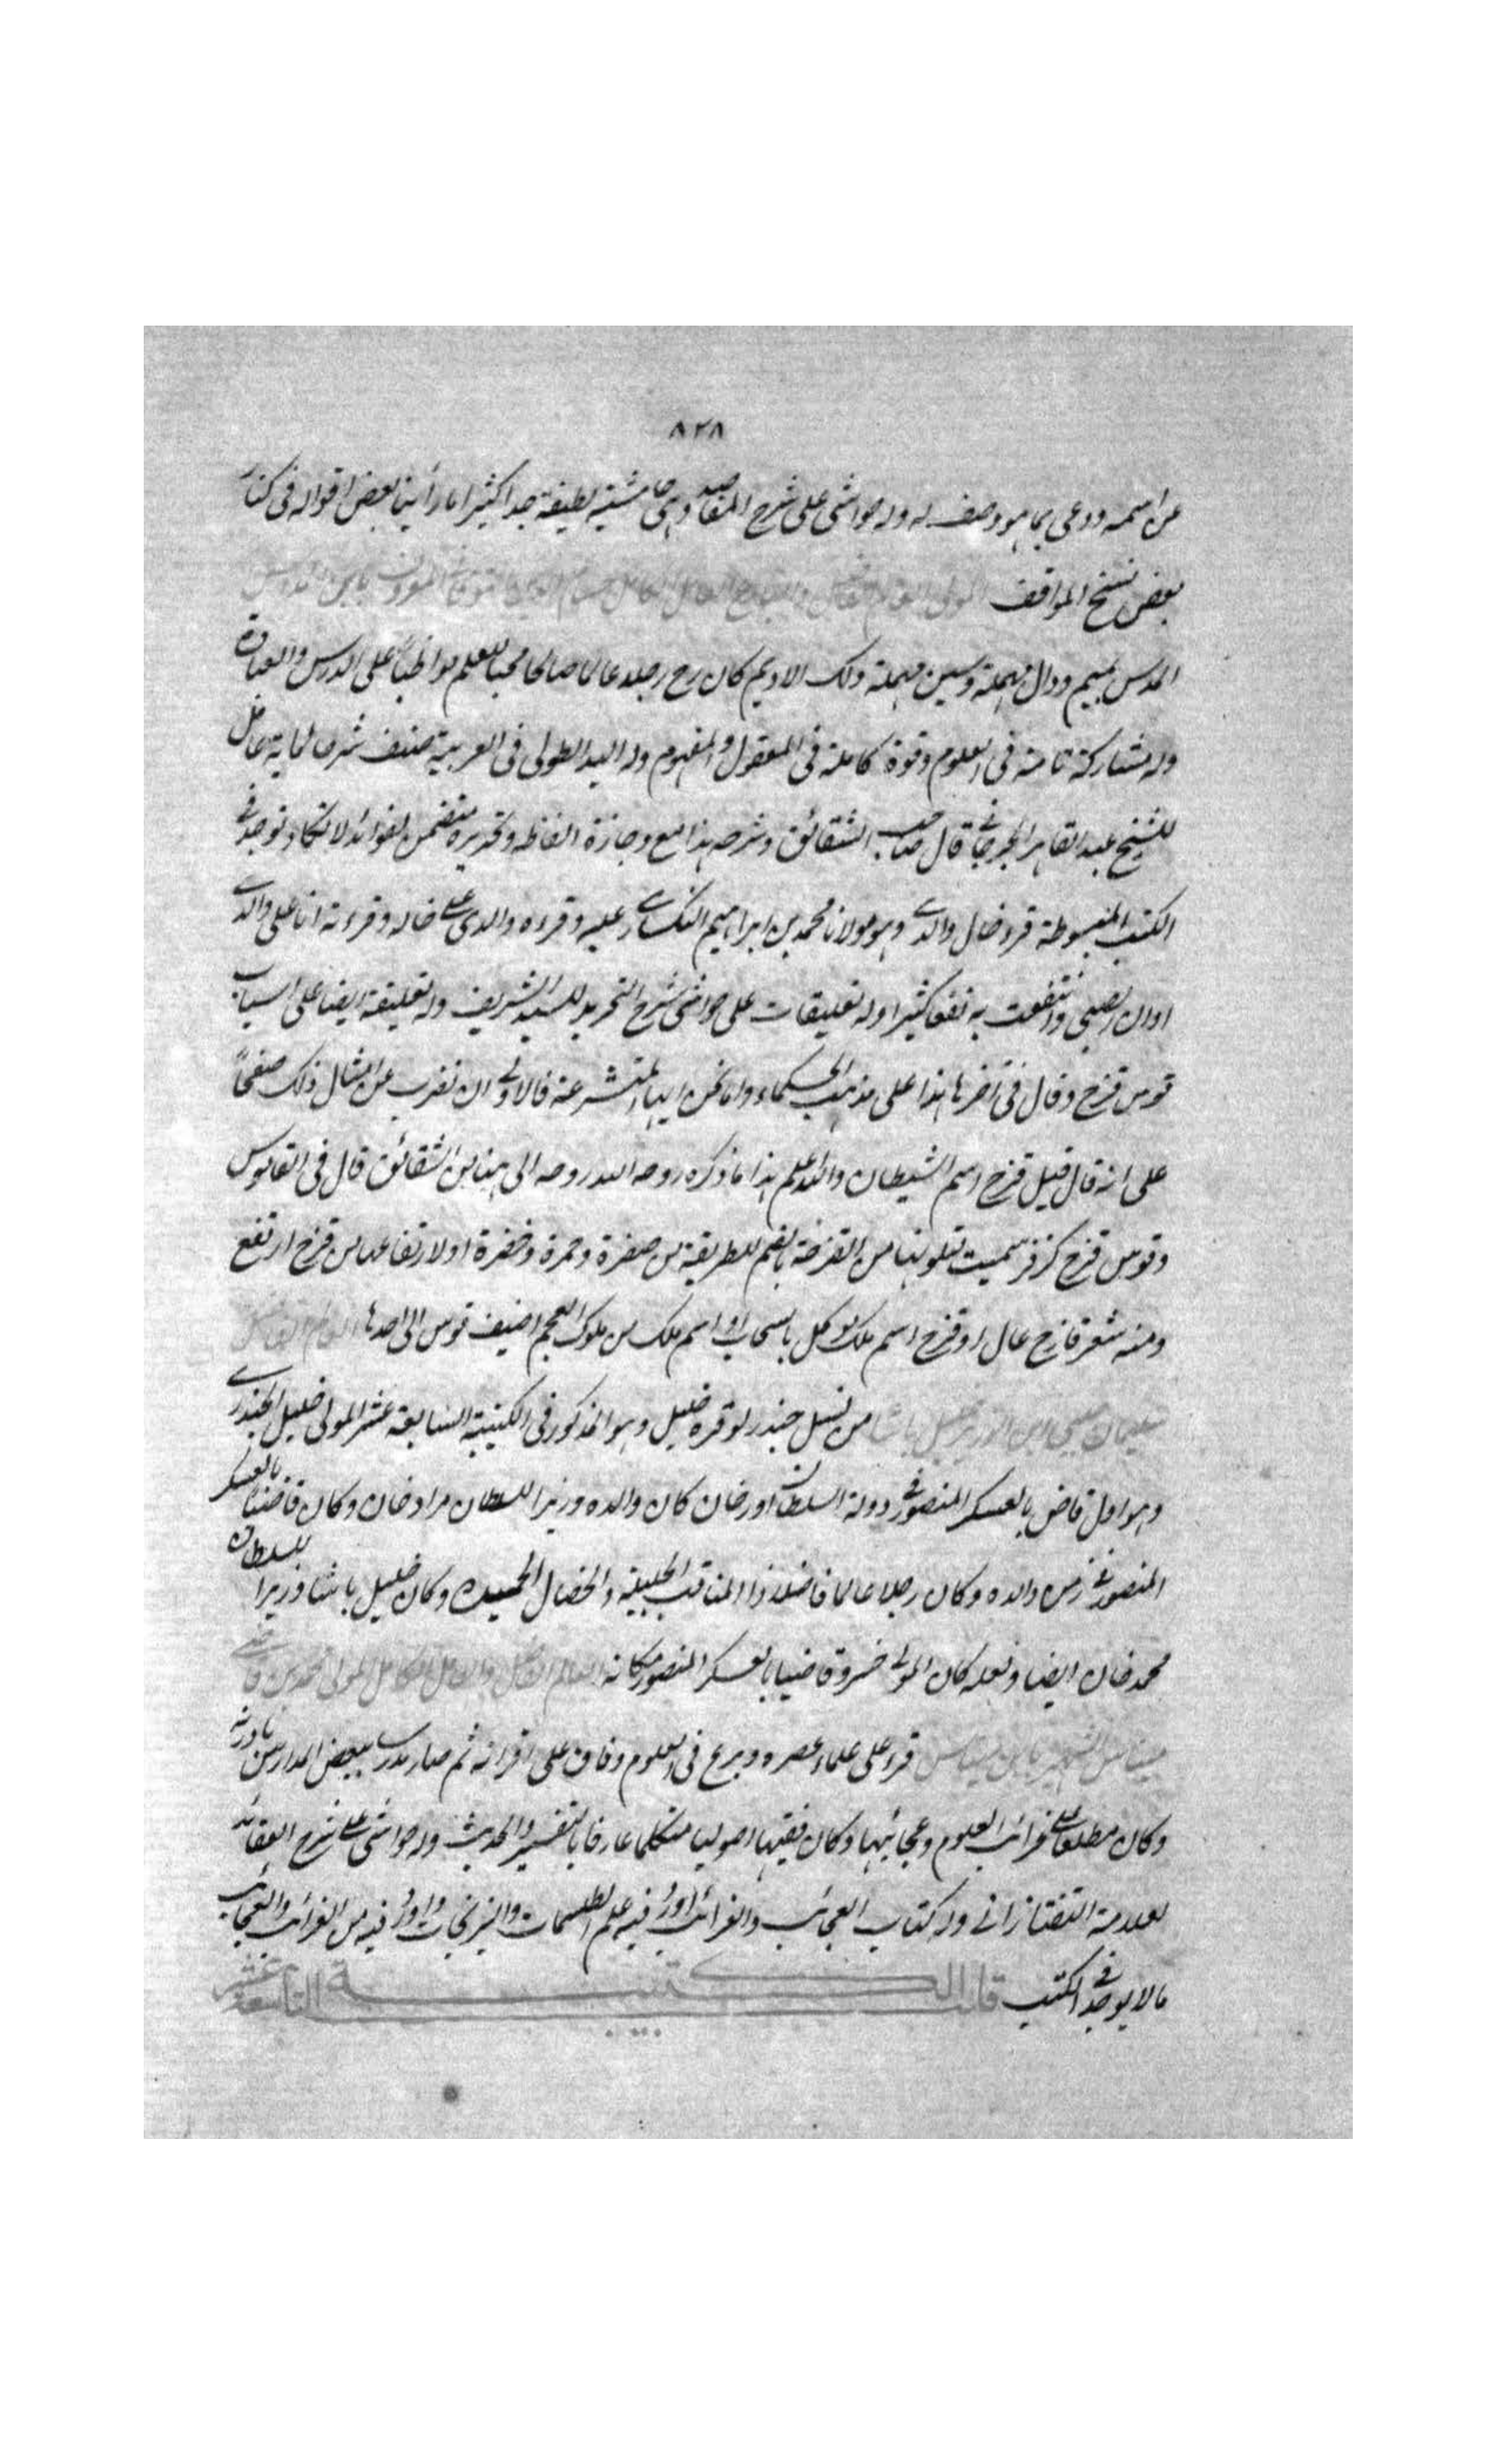 ٨٢٨
عن اسمه ودعى بما هو وصف له وله حواشى على شرح المقاصد وهى حاشية لطيفة جدا كثيرا ما رأينا بعض اقواله فى كنار
بعض نسخ المواقف المولى العالم الفاضل حسام الدين التوقاتى المعروف بابن المداس
المدس بميم ودال مهملة وسين مهملة دلك الاديم كان رح رجلا عالما صالحا محبا للعلم مواظبا على الدرس والعبادة
وله مشاركة تامة فى العلوم وقوة كاملة فى المعقول والمفهوم وله اليد الطولى فى العربية صنف شرحا لماية عامل
للشيخ عبد القاهر الجرجانى قال صاحب الشقائق وشرحه هذا مع وجازة الفاظه وتحريره متضمن لفوائد لا تكاد توجد فى
الكتب المبسوطة قرء خال والدى وهو مولانا محمد بن ابراهيم النكسارى عليه وقراه والدى على خاله وقرءته انا على والدى
اوان الصبى وانتفعت به نفعا كثيرا وله تعليقات على حواشى شرح التجريد للسيد الشريف وله تعليقة ايضا على اسباب
قوس قزح وقال فى آخرها هذا على مذهب الحكماء واما نحن ايها المتشرعة فالاولى ان نضرب عن امثال ذلك صفحاً
على انه قال قيل قزح اسم الشيطان والله اعلم هذا ما ذكره روحه الله روحه الى هنا من الشقائق قال فى القاموس
وقوس قزح كزفر سميت لتلونها من القزحة بالضم للطريقة من صفرة وحمرة وخضرة او لارتفاعها من قزح ارتفع
ومنه سعر قازح عال او قزح اسم ملك موكل بالسحاب او اسم ملك من ملوك العجم اضيف قوس الى احدها العالم الفاضل
سليمان چلبى ابن الوزير خليل باشا من نسل جندرلو قره خليل وهو المذكور فى الكتيبة السابعة عشر المولى خليل الجندرى
وهو اول قاض بالعسكر المنصور فى دولة السلطان اورخان كان والده وزيرا للسلطان مراد خان وكان قاضيا بالعسكر
المنصور فى زمن والده وكان رجلا عالما فاضلا ذا المناقب الجليلة والخصال الحميدة وكان خليل باشا وزيرا للسلطان
محمد خان ايضا ولعله كان المولى خسرو قاضيا بالعسكر المنصور مكانه العالم الفاضل والعامل الكامل المولى محمد بن قاضى
ميناس الشهير بابن ميناس قرء على علماء عصره وبرع فى العلوم وفاق على اقرانه ثم صار مدرسا ببعض المدارس بادرنه
وكان مطلعا على غرائب العلوم وعجائبها وكان فقيها اصوليا متكلما عارفا بالتفسير والحديث وله حواشى على شرح العقائد
للعلامة التفتازانى وله كتاب العجائب والغرائب اورد فيه علم الطلسمات والنيرنجات واورد فيه من الغرائب والعجائب
ما لا يوجد فى الكتب قلب الكتيبة التاسعة عشر